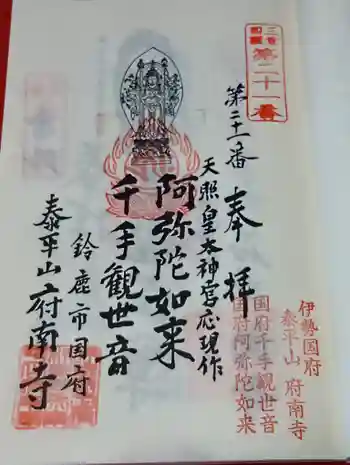 三重
四国
第二十一番
第二十一番
奉拝
天照皇太神宮応現作
阿弥陀如来
千手観世音
鈴鹿市国府
泰平山府南寺
伊勢国府
泰平山 府南寺
国府千手観世音
国府阿弥陀如来